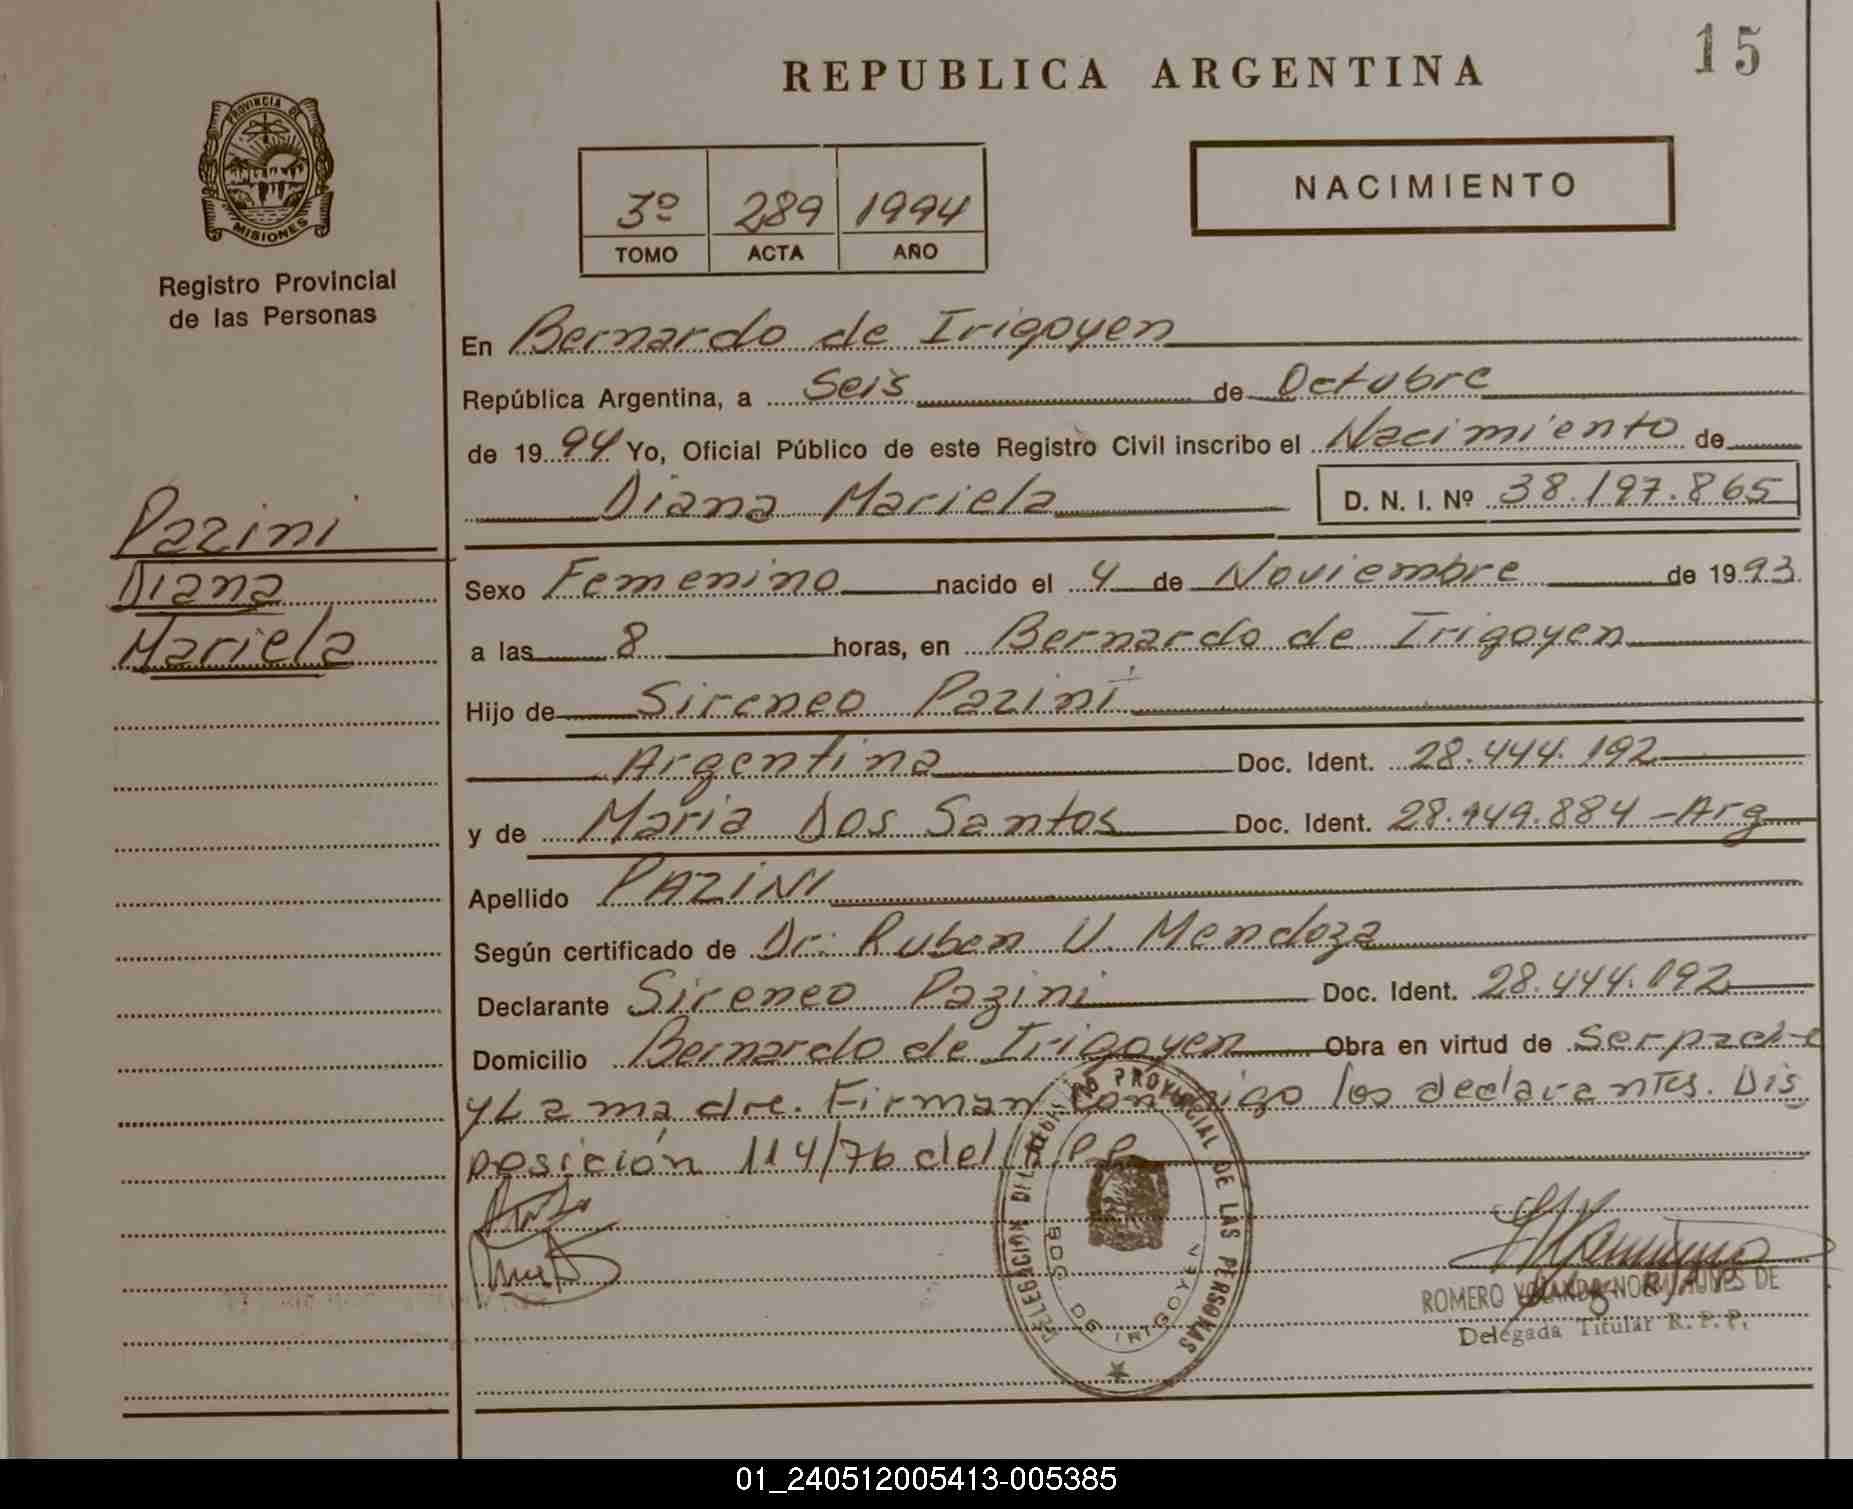 15
REPUBLICA ARGENTINA
PROVINCIA DE MISIONES
Registro Provincial
de las Personas
3º 289 1994
TOMO ACTA AÑO
NACIMIENTO
En Bernardo de Irigoyen
República Argentina, a Seis de Octubre
de 1994 Yo, Oficial Público de este Registro Civil inscribo el Nacimiento de
Diana Mariela D. N. I. Nº 38.197.865
Pazini
Diana
Mariela
Sexo Femenino nacido el 4 de Noviembre de 1993
a las 8 horas, en Bernardo de Irigoyen
Hijo de Sireneo Pazini
Argentina Doc. Ident. 28.444.192
y de Maria Dos Santos Doc. Ident. 28.949.884 - Arg
Apellido PAZINI
Según certificado de Dr. Ruben V. Mendoza
Declarante Sireneo Pazini Doc. Ident. 28.444.192
Domicilio Bernardo de Irigoyen Obra en virtud de Ser padre
y La madre. Firman conmigo los declarantes. Dis
posición 114/76 del R.P.P.
DELEGACION DEL REGISTRO PROVINCIAL DE LAS PERSONAS
BDO. DE IRIGOYEN
ROMERO YOLANDA NORMA DE
Delegada Titular R. P. P.
01_240512005413-005385